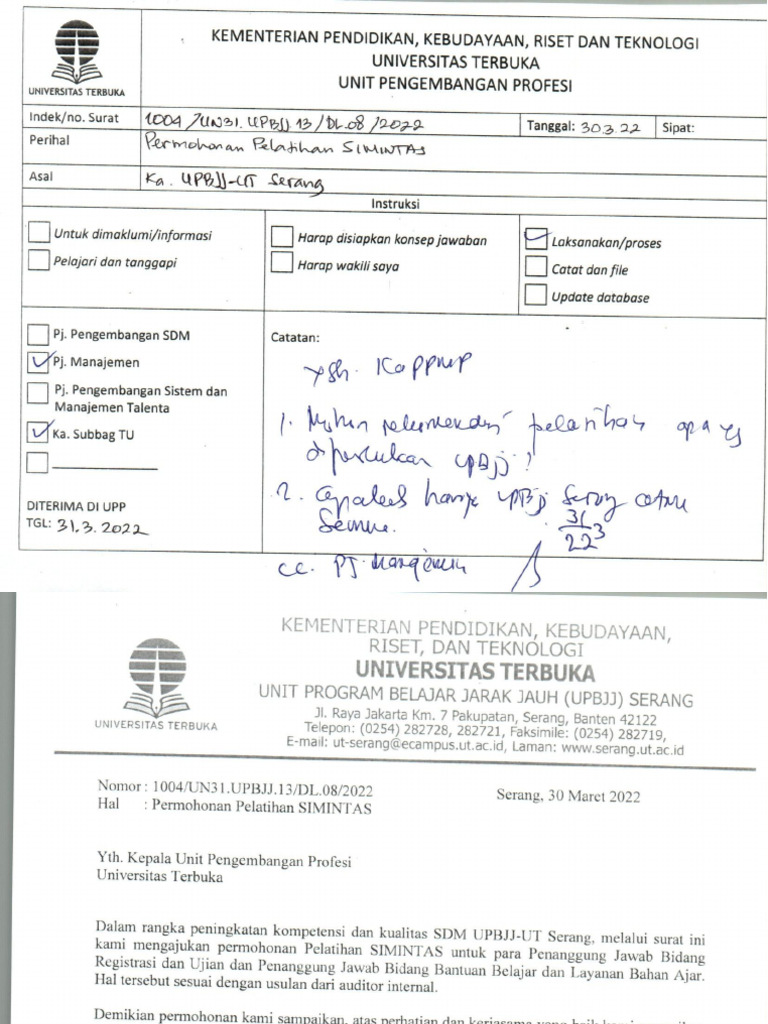 KEMENTERIAN PENDIDIKAN, KEBUDAYAAN, RISET DAN TEKNOLOGI
UNIVERSITAS TERBUKA
UNIT PENGEMBANGAN PROFESI
UNIVERSITAS TERBUKA
Indek/no. Surat 1004/UN31.UPBJJ.13/DL.08/2022 Tanggal: 30.3.22 Sipat:
Perihal Permohonan Pelatihan SIMINTAS
Asal Ka. UPBJJ-UT Serang
Instruksi
Untuk dimaklumi/informasi
Pelajari dan tanggapi
Harap disiapkan konsep jawaban
Harap wakili saya
Laksanakan/proses
Catat dan file
Update database
Pj. Pengembangan SDM
Pj. Manajemen
Pj. Pengembangan Sistem dan
Manajemen Talenta
Ka. Subbag TU
DITERIMA DI UPP
TGL: 31.3.2022
Catatan:
Ysh.
1. Mohon pelatihan apa yg
diperlukan UPBJJ?
2. hanya UPBJJ Serang
31/3
22
cc. PJ. Manajemen
KEMENTERIAN PENDIDIKAN, KEBUDAYAAN,
RISET, DAN TEKNOLOGI
UNIVERSITAS TERBUKA
UNIT PROGRAM BELAJAR JARAK JAUH (UPBJJ) SERANG
Jl. Raya Jakarta Km. 7 Pakupatan, Serang, Banten 42122
Telepon: (0254) 282728, 282721, Faksimile: (0254) 282719,
E-mail: ut-serang@ecampus.ut.ac.id, Laman: www.serang.ut.ac.id
UNIVERSITAS TERBUKA
Nomor : 1004/UN31.UPBJJ.13/DL.08/2022 Serang, 30 Maret 2022
Hal : Permohonan Pelatihan SIMINTAS
Yth. Kepala Unit Pengembangan Profesi
Universitas Terbuka
Dalam rangka peningkatan kompetensi dan kualitas SDM UPBJJ-UT Serang, melalui surat ini
kami mengajukan permohonan Pelatihan SIMINTAS untuk para Penanggung Jawab Bidang
Registrasi dan Ujian dan Penanggung Jawab Bidang Bantuan Belajar dan Layanan Bahan Ajar.
Hal tersebut sesuai dengan usulan dari auditor internal.
Demikian permohonan kami sampaikan, atas perhatian dan kerjasama yang baik